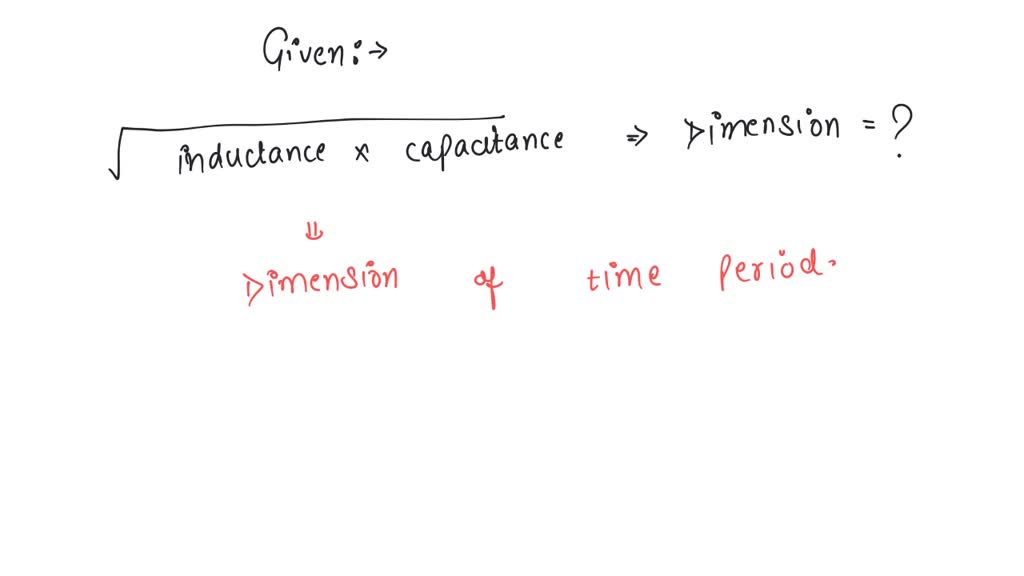 Given:→
√ inductance × capacitance ⇒ Dimension = ?
⇓
Dimension of time Period.